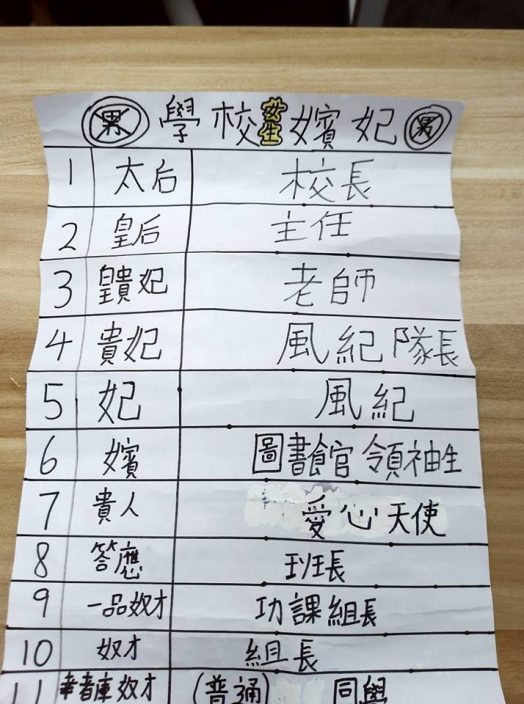 男 學校女生嬪妃 男
1 太后 校長
2 皇后 主任
3 皇貴妃 老師
4 貴妃 風紀隊長
5 妃 風紀
6 嬪 圖書館領袖生
7 貴人 愛心天使
8 答應 班長
9 一品奴才 功課組長
10 奴才 組長
11 辛者庫奴才 (普通) 同學